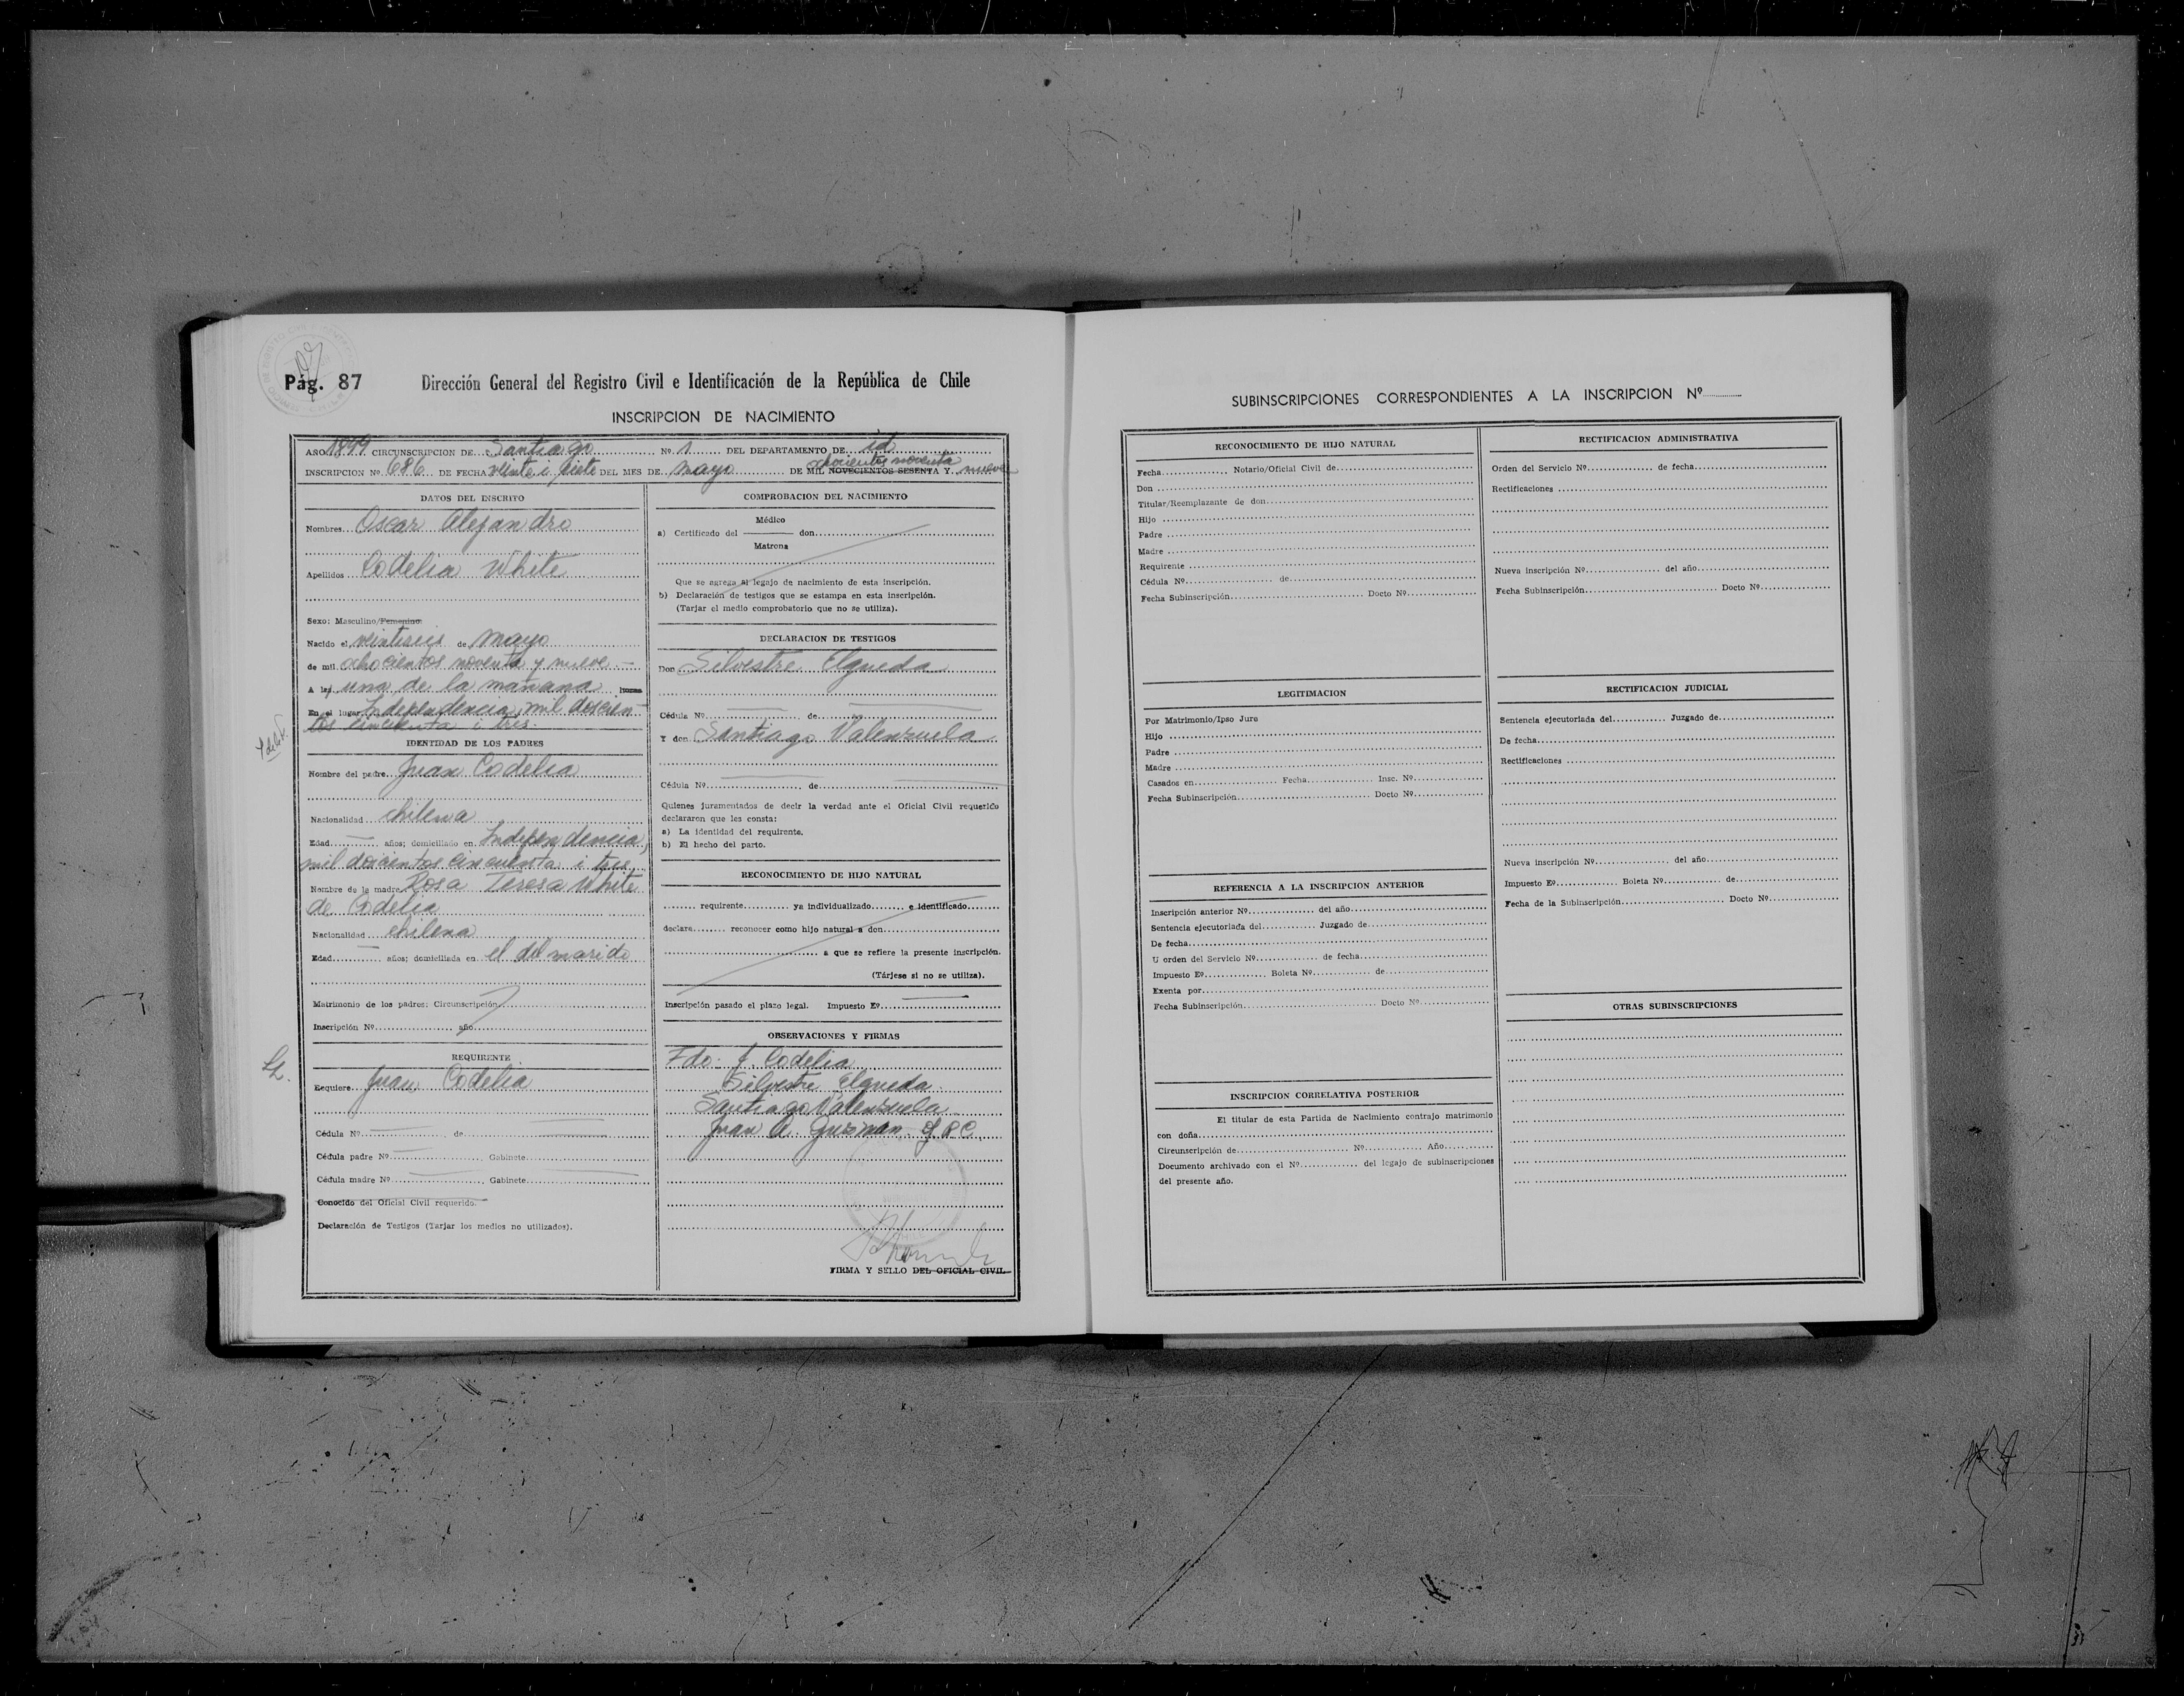 Pág. 87
Dirección General del Registro Civil e Identificación de la República de Chile
INSCRIPCION DE NACIMIENTO
AÑO 1899 CIRCUNSCRIPCION DE Santiago Nº 1 DEL DEPARTAMENTO DE id
ochocientos noventa
INSCRIPCION Nº 686 DE FECHA veinte i siete DEL MES DE mayo DE MIL NOVECIENTOS SESENTA Y nueve
DATOS DEL INSCRITO
Nombres Oscar Alejandro
Apellidos Codelia White
Sexo: Masculino/Femenino:
Nacido el veintiseis de mayo
de mil ochocientos noventa y nueve
A las una de la mañana horas
En el lugar Independencia, mil doscien-
tos cincuenta i tres.
IDENTIDAD DE LOS PADRES
Nombre del padre Juan Codelia
Nacionalidad chilena
Edad años; domiciliado en Independencia,
mil doscientos cincuenta i tres
Nombre de la madre Rosa Teresa White
de Codelia
Nacionalidad chilena
Edad años; domiciliada en el del marido
Matrimonio de los padres: Circunscripción
Inscripción Nº año
REQUIRENTE
Requiere Juan Codelia
Cédula Nº de
Cédula padre Nº Gabinete
Cédula madre Nº Gabinete
Conocido del Oficial Civil requerido.
Declaración de Testigos (Tarjar los medios no utilizados).
COMPROBACION DEL NACIMIENTO
Médico
a) Certificado del don
Matrona
Que se agrega al legajo de nacimiento de esta inscripción.
b) Declaración de testigos que se estampa en esta inscripción.
(Tarjar el medio comprobatorio que no se utiliza).
DECLARACION DE TESTIGOS
Don Silvestre Elgueda
Cédula Nº de
Y don Santiago Valenzuela
Cédula Nº de
Quienes juramentados de decir la verdad ante el Oficial Civil requerido
declararon que les consta:
a) La identidad del requirente.
b) El hecho del parto.
RECONOCIMIENTO DE HIJO NATURAL
requirente ya individualizado e identificado
declara reconocer como hijo natural a don
a que se refiere la presente inscripción.
(Tárjese si no se utiliza).
Inscripción pasado el plazo legal. Impuesto Eº
OBSERVACIONES Y FIRMAS
Fdo: J. Codelia
Silvestre Elgueda
Santiago Valenzuela
Juan A. Guzman
FIRMA Y SELLO DEL OFICIAL CIVIL
SUBINSCRIPCIONES CORRESPONDIENTES A LA INSCRIPCION Nº
RECONOCIMIENTO DE HIJO NATURAL
Fecha Notario/Oficial Civil de
Don
Titular/Reemplazante de don
Hijo
Padre
Madre
Requirente
Cédula Nº de
Fecha Subinscripción Docto Nº
LEGITIMACION
Por Matrimonio/Ipso Jure
Hijo
Padre
Madre
Casados en Fecha Insc. Nº
Fecha Subinscripción Docto Nº
REFERENCIA A LA INSCRIPCION ANTERIOR
Inscripción anterior Nº del año
Sentencia ejecutoriada del Juzgado de
De fecha
U orden del Servicio Nº de fecha
Impuesto Eº Boleta Nº de
Exenta por
Fecha Subinscripción Docto Nº
INSCRIPCION CORRELATIVA POSTERIOR
El titular de esta Partida de Nacimiento contrajo matrimonio
con doña
Circunscripción de Nº Año
Documento archivado con el Nº del legajo de subinscripciones
del presente año.
RECTIFICACION ADMINISTRATIVA
Orden del Servicio Nº de fecha
Rectificaciones
Nueva inscripción Nº del año
Fecha Subinscripción Docto Nº
RECTIFICACION JUDICIAL
Sentencia ejecutoriada del Juzgado de
De fecha
Rectificaciones
Nueva inscripción Nº del año
Impuesto Eº Boleta Nº de
Fecha de la Subinscripción Docto Nº
OTRAS SUBINSCRIPCIONES